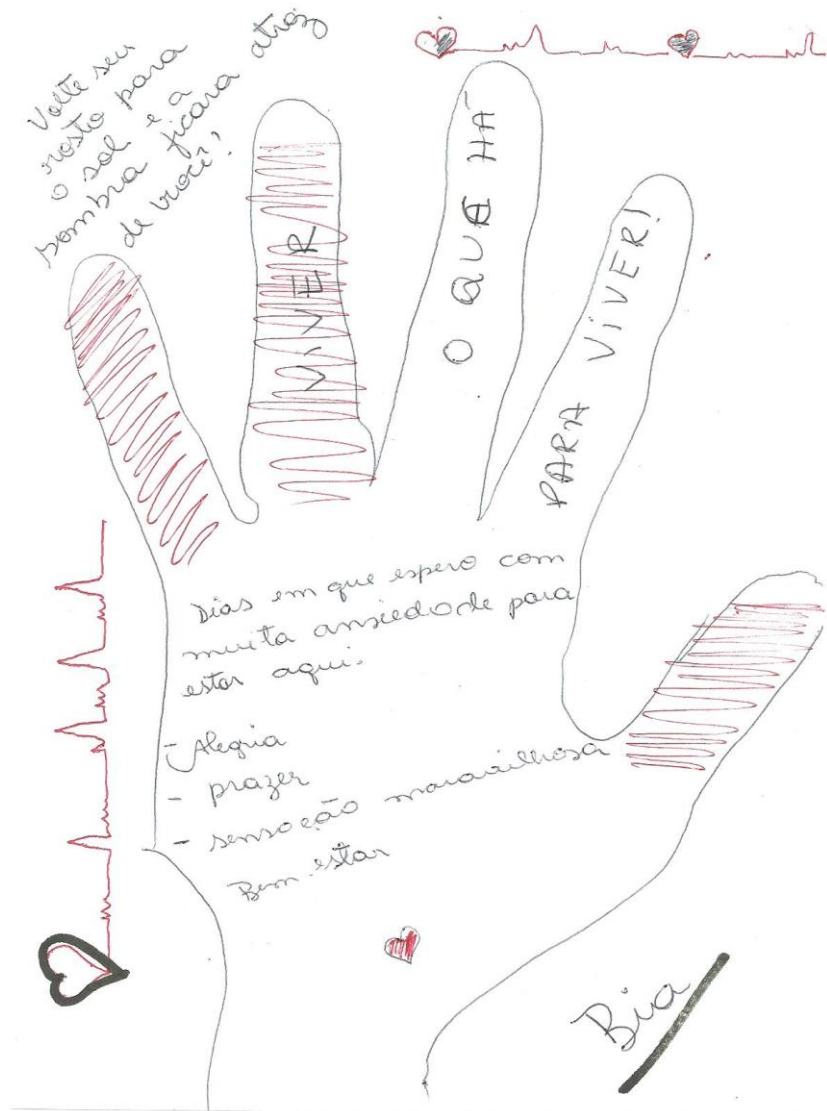 Volte seu
rosto para
o sol e a
sombra ficara atrás
de você!
VIVER
O QUE HÁ
PARA VIVER!
Dias em que espero com
muita ansiedade para
estar aqui.
- Alegria
- prazer
- sensação maravilhosa
Bem estar
Bia